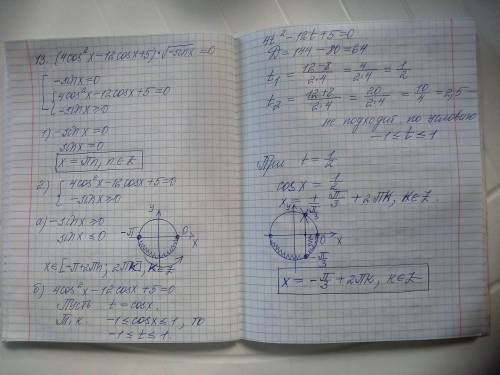 13. (4cos²x-12cosx+5)·√-sinx=0
[-sinx=0
{4cos²x-12cosx+5=0
-sinx≥0
1) -sinx=0
sinx=0
x=πn, n∈Z
2) {4cos²x-12cosx+5=0
-sinx≥0
а) -sinx≥0
sinx≤0
y
-π
0
x
x∈[-π+2πk; 2πk], k∈Z
б) 4cos²x-12cosx+5=0
Пусть t=cosx.
Т.к. -1≤cosx≤1, то
-1≤t≤1.
4t²-12t+5=0
D=144-80=64
t₁=12-8/2·4=4/2·4=1/2
t₂=12+8/2·4=20/2·4=10/4=2,5-
не подходит по условию
-1≤t≤1
При t=1/2
cosx=1/2
x=±π/3+2πk, k∈Z.
y
π/3
0
x
-π/3
x=-π/3+2πk, k∈Z